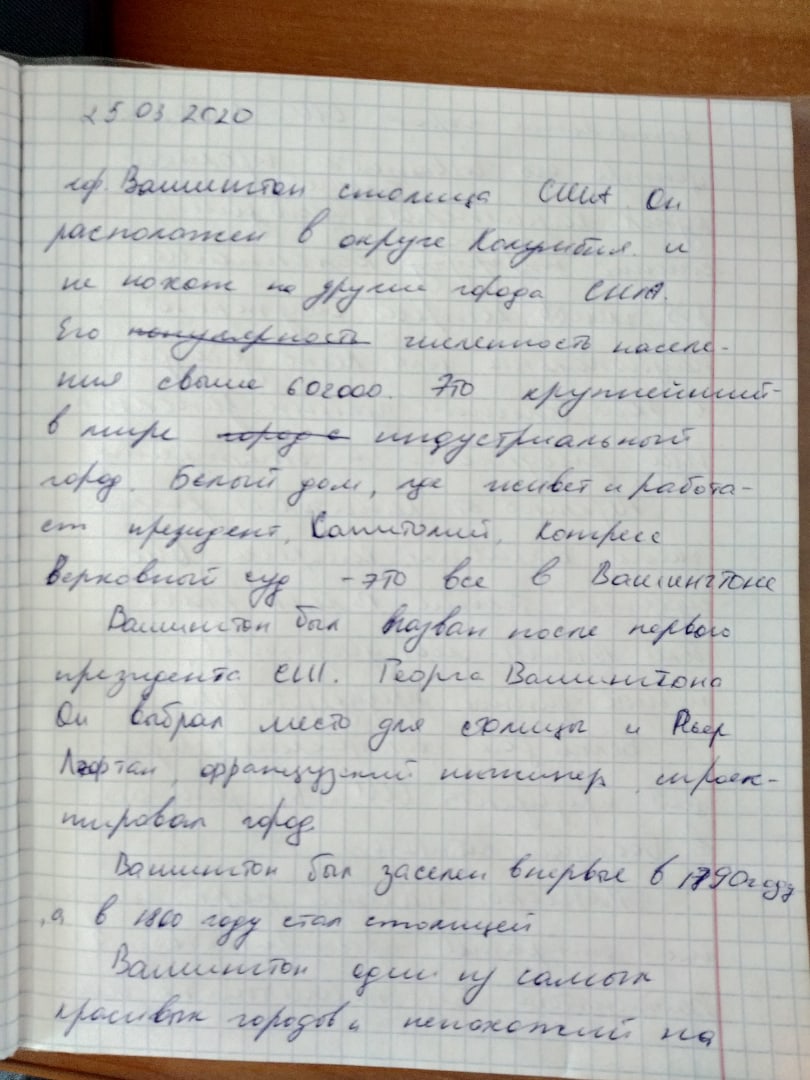 25 03 2020
Вашингтон столица США. Он
расположен в округе Колумбия и
не похож на другие города США.
Его популярность численность населе-
ния свыше 602000. Это крупнейший
в мире город с индустриальный
город. Белый дом, где живет и работа-
ет президент, Капитолий, Конгресс
Верховный суд - это все в Вашингтоне
Вашингтон был назван после первого
президента США. Георга Вашингтона
Он выбрал место для столицы и Пьер
французский инженер, спроек-
тировал город.
Вашингтон был заселен впервые в 1790 году
, а в 1800 году стал столицей
Вашингтон один из самых
красивых городов и непохожий на